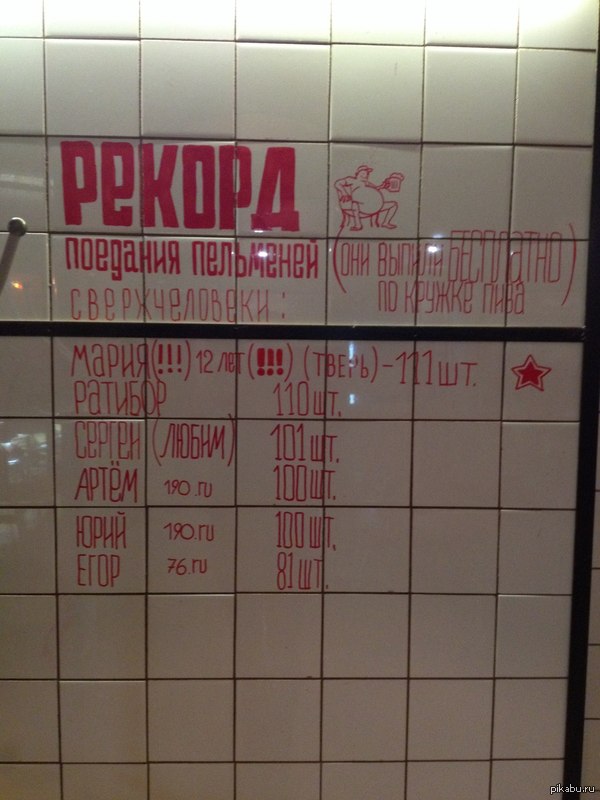 РЕКОРД
ПОЕДАНИЯ ПЕЛЬМЕНЕЙ
(ОНИ ВЫПИЛИ БЕСПЛАТНО
ПО КРУЖКЕ ПИВА)
СВЕРХЧЕЛОВЕКИ:
МАРИЯ(!!!) 12 лет (!!!) (ТВЕРЬ) - 111 шт.
РАТИБОР 110 шт.
СЕРГЕЙ (ЛЮБИМ) 101 шт.
АРТЁМ 190.ru 100 шт.
ЮРИЙ 190.ru 100 шт.
ЕГОР 76.ru 81 шт.
pikabu.ru